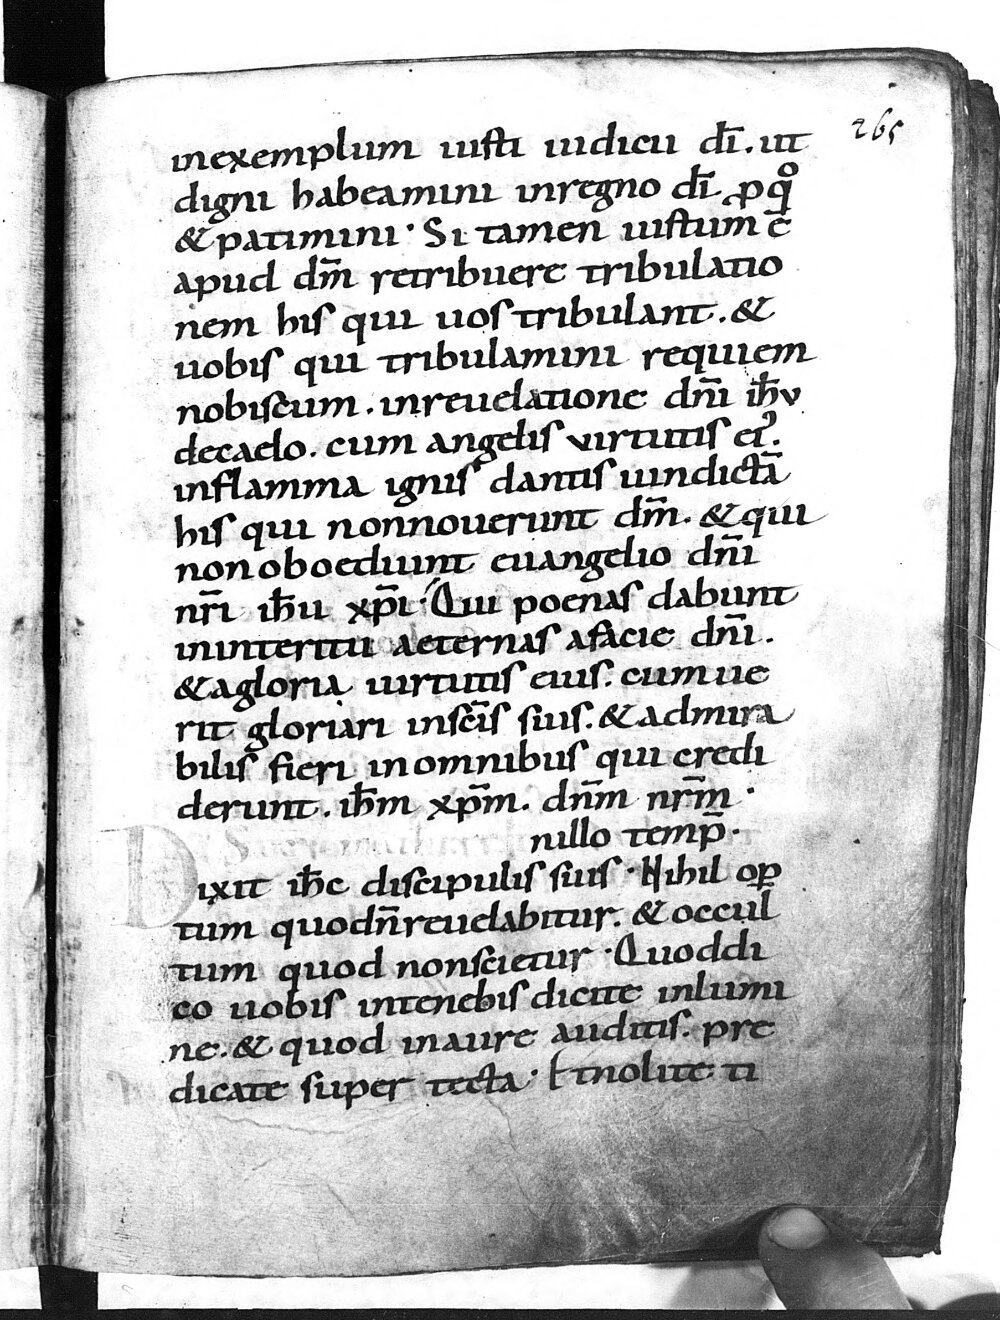 265
inexemplum iusti iudicii dī. ut
digni habeamini inregno dī ꝓqͦ
& patimini· Si tamen iustum ē
apud dm̄ retribuere tribulatio
nem his qui uos tribulant. &
uobis qui tribulamini requiem
nobiscum. inreuelatione dn̄i ih̄u
decaelo. cum angelis virtutis ei'.
inflamma ignis dantis uindictā
his qui nonnouerunt dm̄. & qui
non oboediunt euangelio dn̄i
nr̄i ih̄u xp̄i· Qui poenas dabunt
ininteritu aeternas afacie dn̄i.
& agloria uirtutis eius. cum ue
rit gloriari insc̄is suis. & admira
bilis fieri in omnibus qui credi
derunt. ih̄m xp̄m. dn̄m nr̄m·
nillo temp̄·
Dixit ih̄c discipulis suis· Nihil op̄
tum quodn̄reuelabitur. & occul
tum quod nonscietur· Quod di
co uobis intenebis dicite inlumi
ne. & quod inaure auditis. pre
dicate super tecta· Etnolite ti